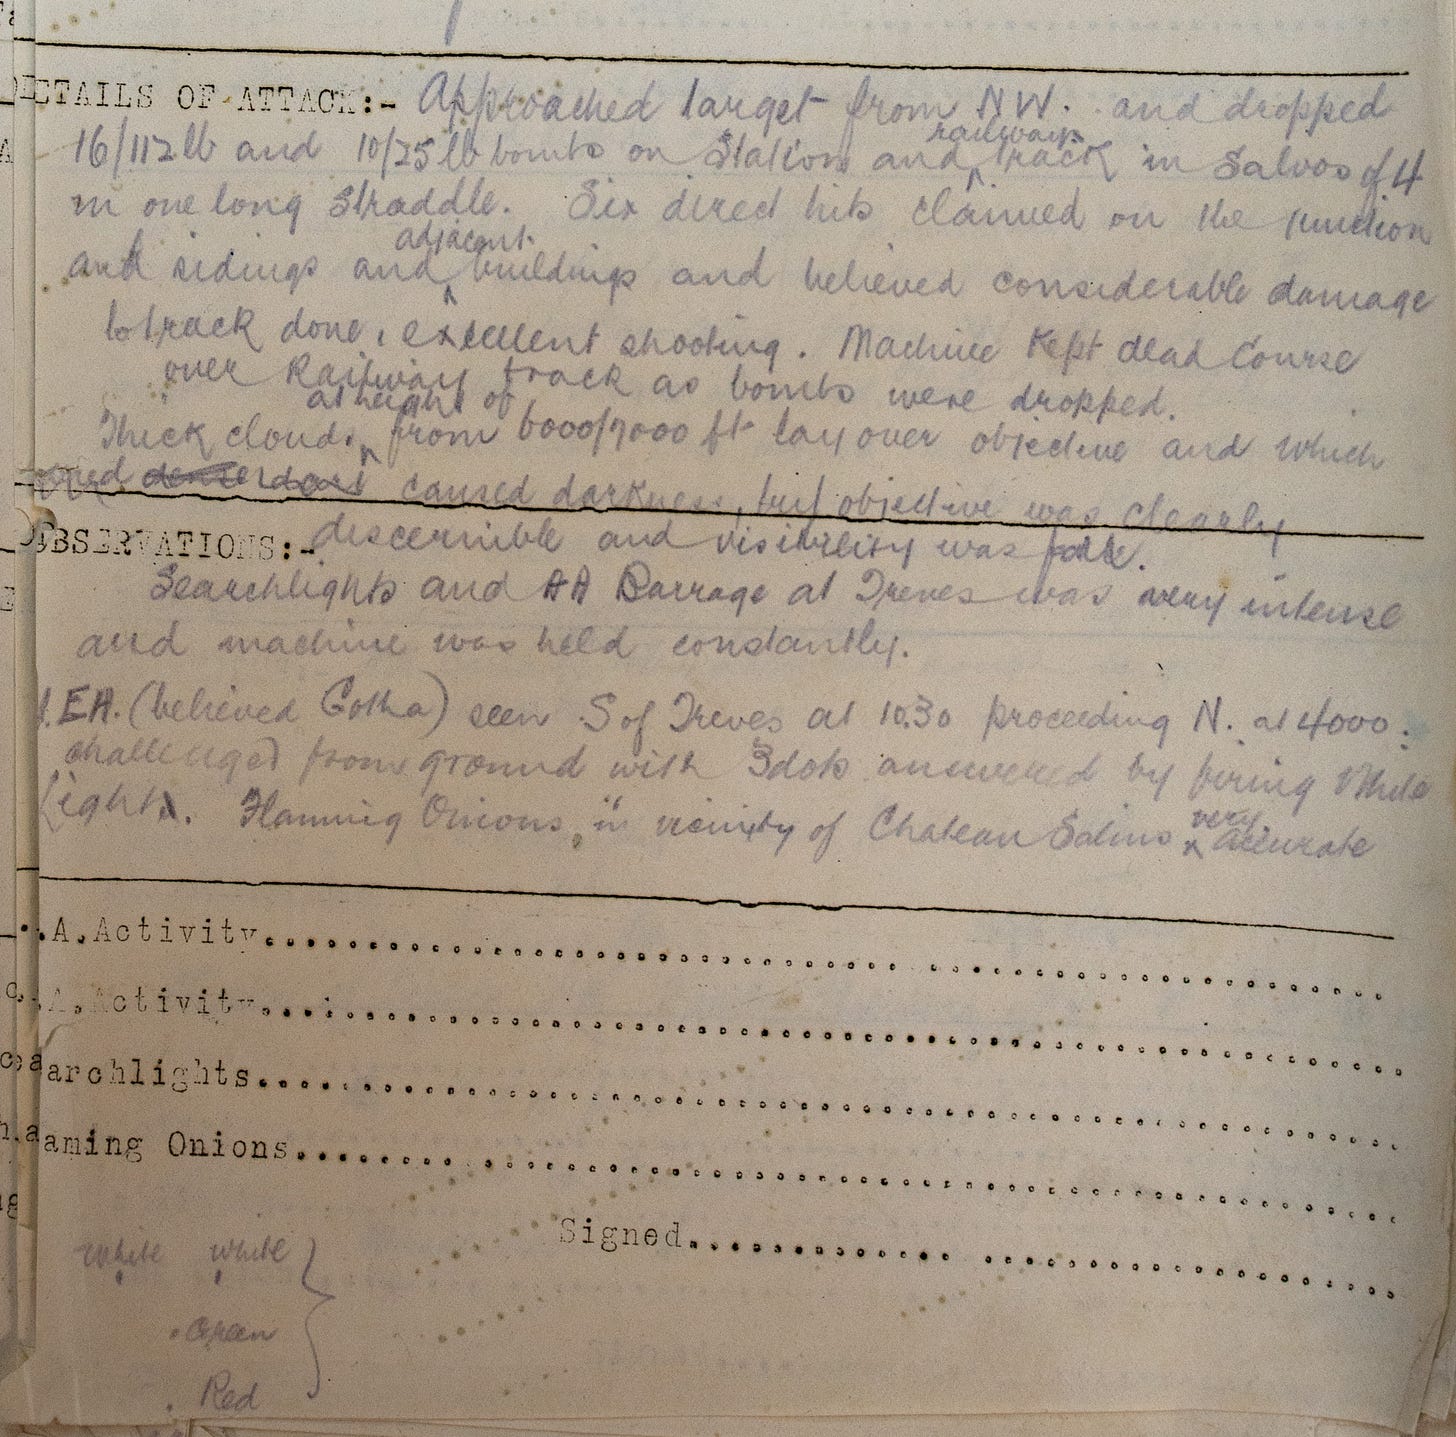 DETAILS OF ATTACK:- Approached target from NW. and dropped
railway
16/112lb and 10/25lb bombs on Station and track in Salvos of 4
in one long Straddle. Six direct hits claimed on the junction
adjacent
and sidings and buildings and believed considerable damage
to track done, excellent shooting. Machine kept dead Course
over Railway track as bombs were dropped.
at height of
Thick cloud, from 6000/7000 ft lay over objective and which
caused darkness, but objective was clearly
OBSERVATIONS:- discernible and visibility was
Searchlights and AA Barrage at Treves was very intense
and machine was held constantly.
1.EA. (believed Gotha) seen S of Treves at 10.30 proceeding N. at 4000.
challenged from ground with 3 dots answered by firing White
Lights. Flaming Onions in vicinity of Chateau Salins accurate
very
.A.Activity
A.Activity
earchlights
aming Onions
Signed
White white
Green
Red